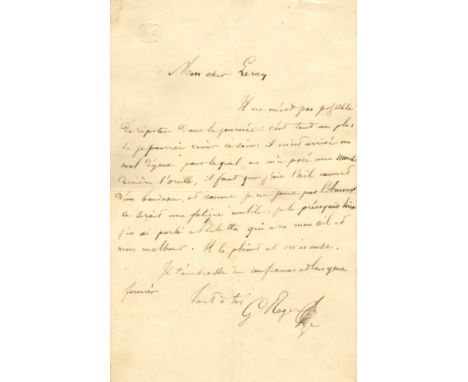 Mon cher Leroy
Il ne m'est pas possible
de répéter dans la journée : c'est tout au plus
si je pourrai venir ce soir il m'est arrivé un
mal d'yeux pour lequel on m'a posé une
derrière l'oreille, il faut que j'aie l'œil couvert
d'un bandeau, et comme je ne joue pas l'
ce serait une fatigue inutile, je le
j'en ai parlé à qui a vu mon œil et
mon malheur. Il le plaint et m'excuse.
Je t'embrasse de confiance
fermées
tout à toi
G Roger